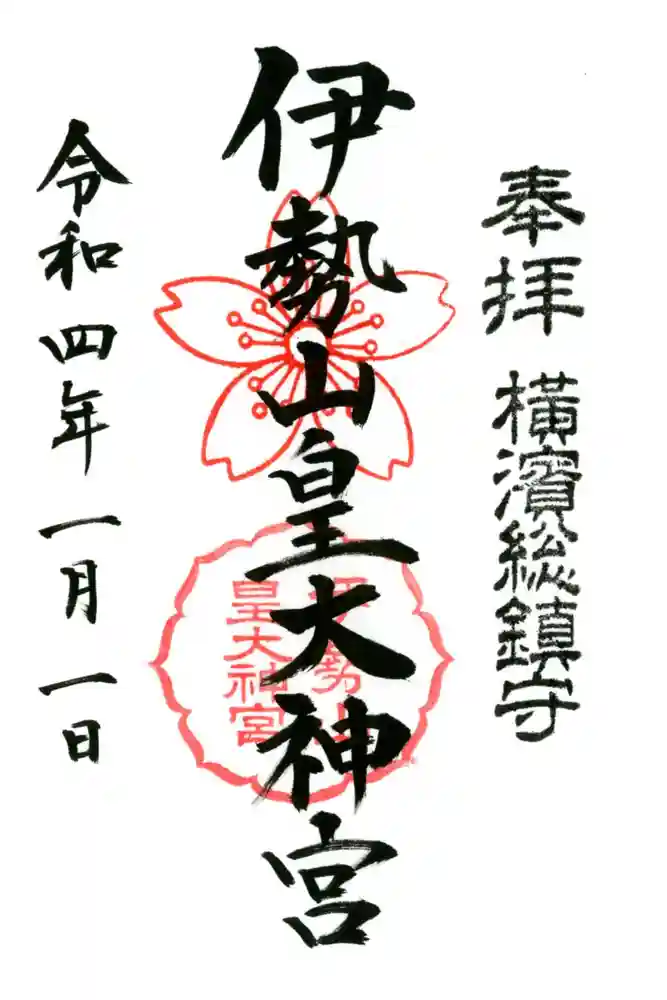 奉拝 横濱総鎮守
伊勢山皇大神宮
伊勢山
皇大神宮
令和四年一月一日